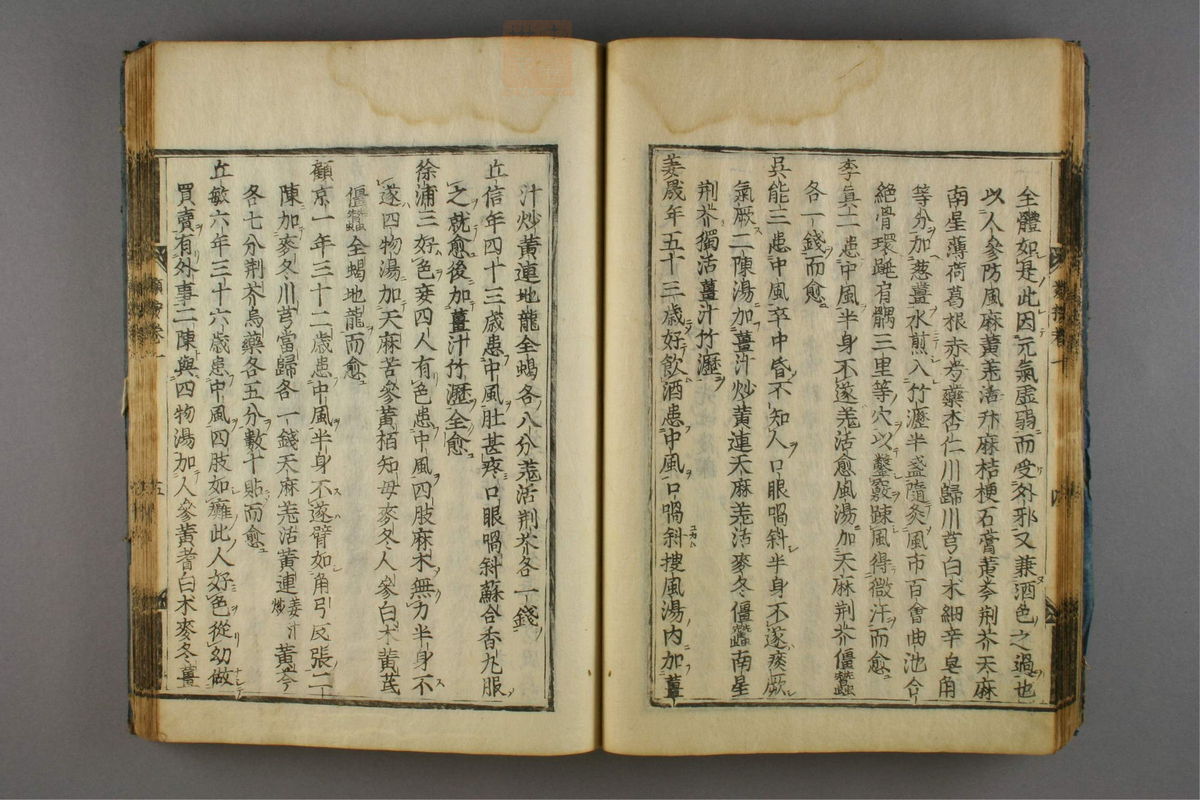 全體如是此因元氣虛弱而受外邪又兼酒色之過也
以人參防風麻黃羌活升麻桔梗石膏黃芩荆芥天麻
南星薄荷葛根赤芍藥杏仁川歸川芎白朮細辛皂角
等分加葱薑水煎入竹瀝半盞隨灸風市百會曲池合
絕骨環跳肩髃三里等穴以鑿竅踈風得微汗而愈
李真二患中風半身不遂羌活愈風湯加天麻荆芥僵蠶
各一錢而愈
吳能三患中風卒中昏不知人口眼喎斜半身不遂痰厥
氣厥二陳湯加薑汁炒黃連天麻羌活麥冬僵蠶南星
荆芥獨活薑汁竹瀝
姜晟年五十三歲好飲酒患中風口喎斜搜風湯內加薑
汁炒黃連地龍全蝎各八分羌活荆芥各一錢
丘信年四十三歲患中風肚甚疼口眼喎斜蘇合香丸服
之就愈後加薑汁竹瀝全愈
徐浦三好色妾四人有色患中風四肢麻木無力半身不
遂四物湯加天麻苦參黃栢知母麥冬人參白朮黃芪
僵蠶全蝎地龍而愈
顧京一年三十二歲患中風半身不遂臂如角引反張二
陳加麥冬川芎當歸各一錢天麻羌活黃連姜汁炒黃芩
各七分荆芥烏藥各五分數十貼而愈
丘敏六年三十六歲患中風四肢如癱此人好色從幼做
買賣有外事二陳與四物湯加人參黃耆白朮麥冬薑